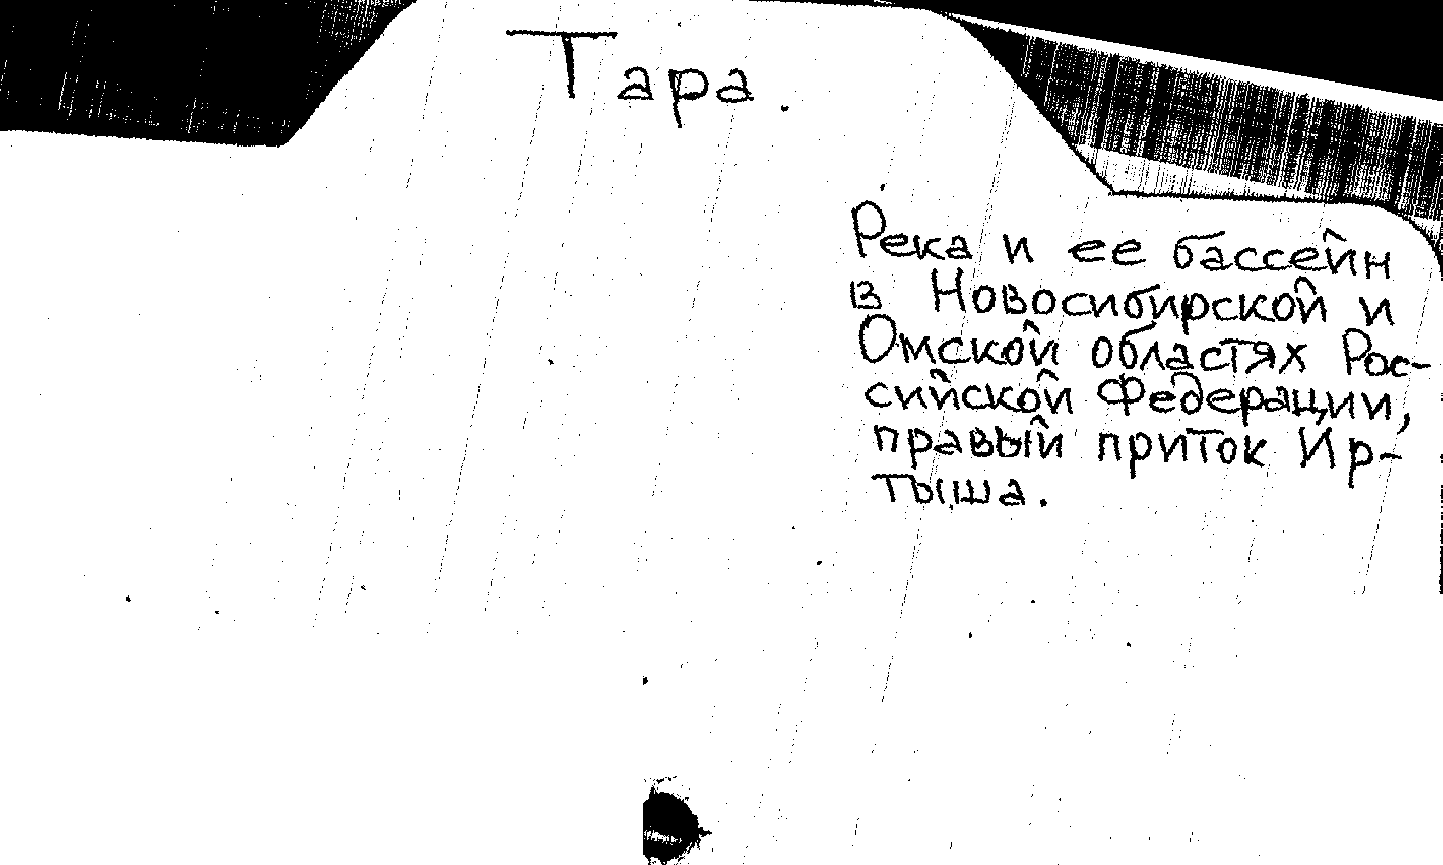 Тара.
Река и ее бассейн
в Новосибирской и
Омской областях Рос-
сийской Федерации,
правый приток Ир-
тыша.